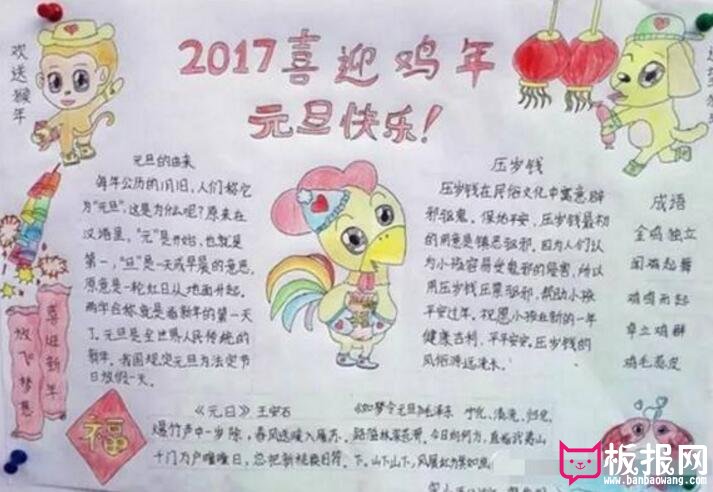 2017喜迎鸡年
元旦快乐!
欢送猴年
元旦的由来
每年公历的1月1日,人们称它
为"元旦",这是为什么呢?原来在
汉语里,"元"是开始,也就是
第一,"旦"是一天或早晨的意思,
原意是一轮红日从地面升起。
两年合称就是指新年的第一天
了。元旦是全世界人民传统的
新年。我国规定元旦为法定节
日放假一天。
压岁钱
压岁钱在民俗文化中寓意辟
邪驱鬼。保佑平安。压岁钱最初
的用意是镇恶驱邪。因为人们认
为小孩容易受鬼祟的侵害,所以
用压岁钱压祟驱邪,帮助小孩
平安过年。祝愿小孩在新的一年
健康吉利、平平安安。压岁钱的
风俗源远流长。
成语
金鸡独立
闻鸡起舞
鸡鸣而起
卓立鸡群
鸡毛蒜皮
喜迎新年
放飞梦想
福
《元日》 王安石
爆竹声中一岁除,春风送暖入屠苏。
千门万户曈曈日,总把新桃换旧符。
《如梦令元旦》毛泽东 宁化、清流、归化,
路隘林深苔滑。今日向何方,直指武夷山
下。山下山下,风展红旗如画。
板报网
www.banbaowang.com